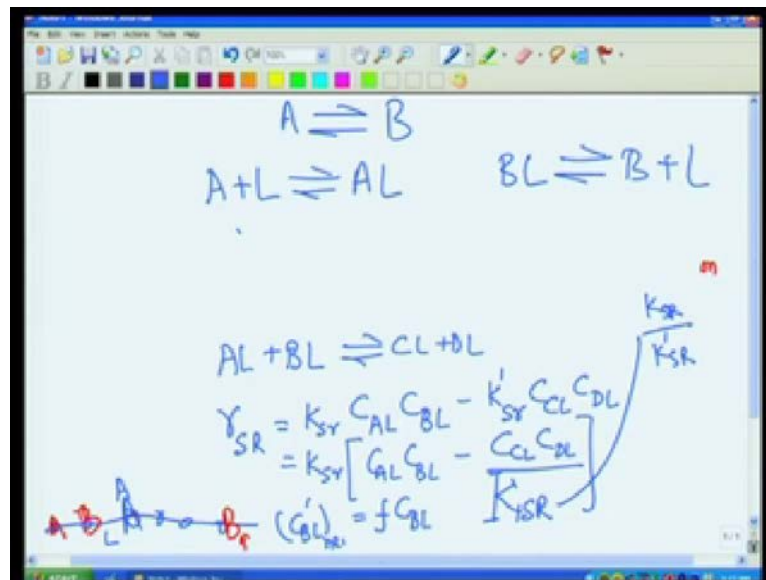 File Edit View Insert Actions Tools Help
100%
B I
A ⇌ B
A+L ⇌ AL
BL ⇌ B+L
m
K_SR / K'_SR
AL + BL ⇌ CL + DL
r_SR = K_sr C_AL C_BL − K'_sr C_CL C_DL
= K_sr [ C_AL C_BL − C_CL C_DL / K_SR ]
A
A B L A B
(C'_BL) = f C_BL
1/1